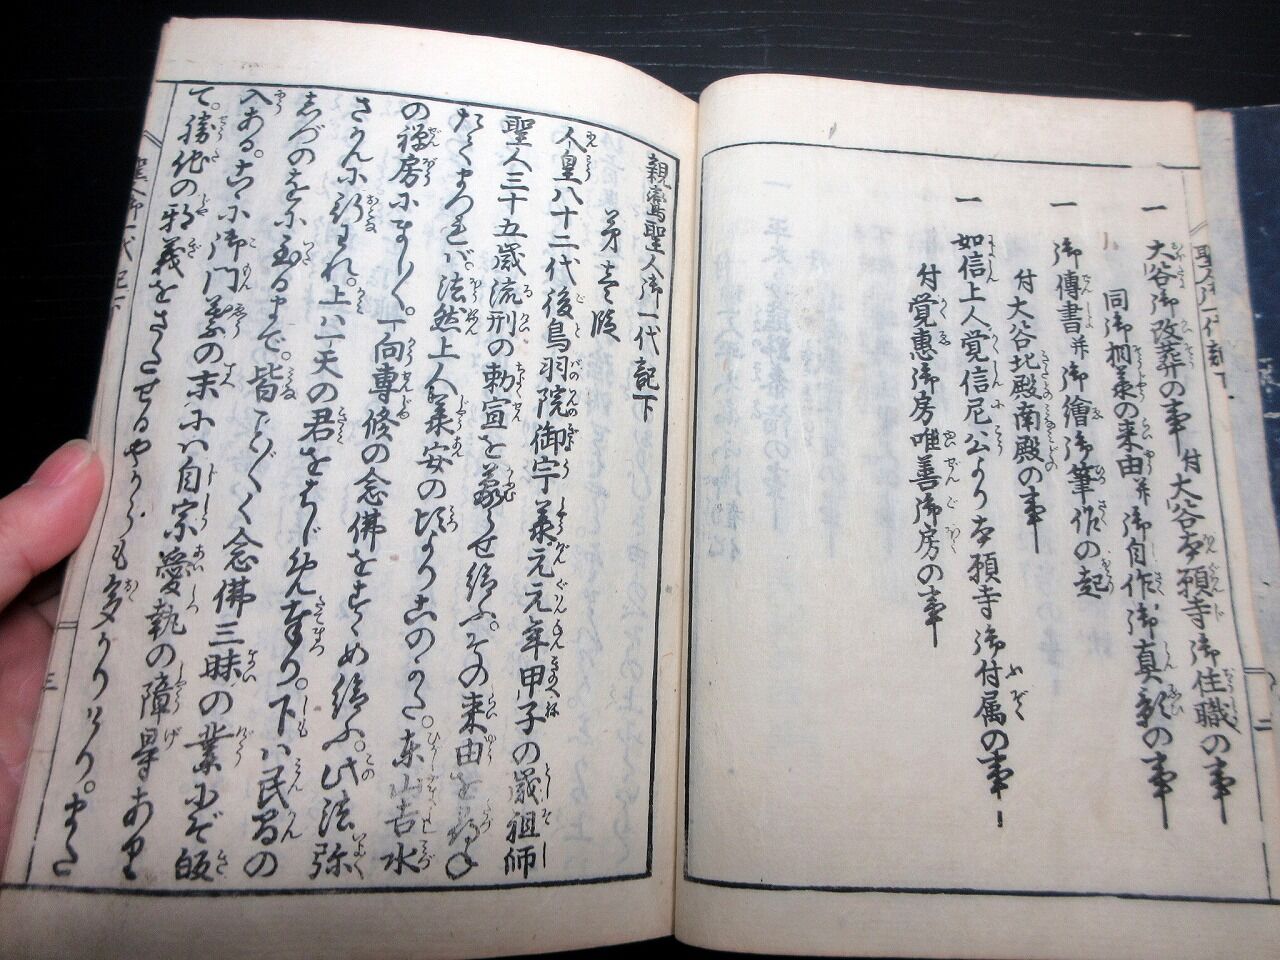 聖人御一代記下
一 大谷御改葬の事 付 大谷本願寺御住職の事
同御相承の来由并御自作御真影の事
一 御傳書并御繪御筆作の起
付 大谷北殿南殿の事
一 如信上人覚信尼公より本願寺御付属の事
付 覚惠御房唯善御房の事
二
親鸞聖人御一代記下
第壱段
人皇八十二代後鳥羽院御宇承元元年甲子の歳祖師
聖人三十五歳流刑の勅宣を蒙らせ給ふ。その来由を尋
たてまつれバ、法然上人承安の頃よりこのかた。東山吉水
の禅房にましまし。一向専修の念佛をすゝめ給ふ。此法弥
さかんに行われ。上ハ一天の君をはじめ奉り。下ハ民間の
しづのをに至るまで。皆ことごとく念佛三昧の業にぞ皈
入ある。こゝに御門葉の末にハ自宗愛執の障㝵あり
て。勝他の邪義をさたせるやからも多かりけり。また
聖人御一代記下
三